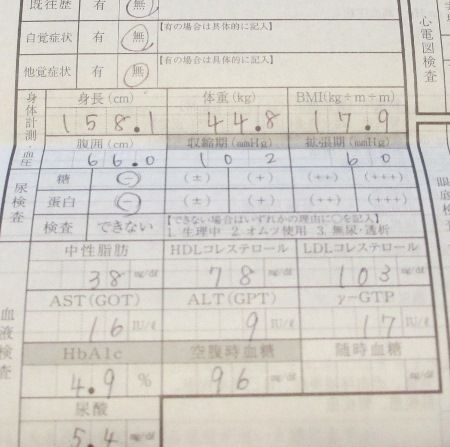 既往歴 有 無
【有の場合は具体的に記入】
自覚症状 有 無
【有の場合は具体的に記入】
他覚症状 有 無
心電図検査
身体計測・血圧
身長(cm) 体重(kg) BMI(kg÷m÷m)
158.1 44.8 17.9
腹囲(cm) 収縮期(mmHg) 拡張期(mmHg)
66.0 102 60
尿検査
糖 (−) (±) (+) (++) (+++)
蛋白 (−) (±) (+) (++) (+++)
検査 できない 【できない場合はいずれかの理由に○を記入】
1. 生理中 2. オムツ使用 3. 無尿・透析
血液検査
中性脂肪 HDLコレステロール LDLコレステロール
38 mg/dℓ 78 mg/dℓ 103 mg/dℓ
AST(GOT) ALT(GPT) γ-GTP
16 IU/ℓ 9 IU/ℓ 17 IU/ℓ
HbA1c 空腹時血糖 随時血糖
4.9 % 96 mg/dℓ mg/dℓ
尿酸
5.4 mg/dℓ